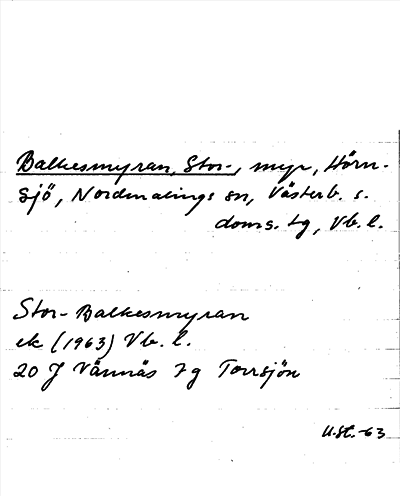 Balkesmyran, Stor-, myr, Hörn-
sjö, Nordmalings sn, Västerb. s.
doms. tg, Vb. l.
Stor-Balkesmyran
ek (1963) Vb. l.
20 J Vännäs 7g Torrsjön
U.St.-63